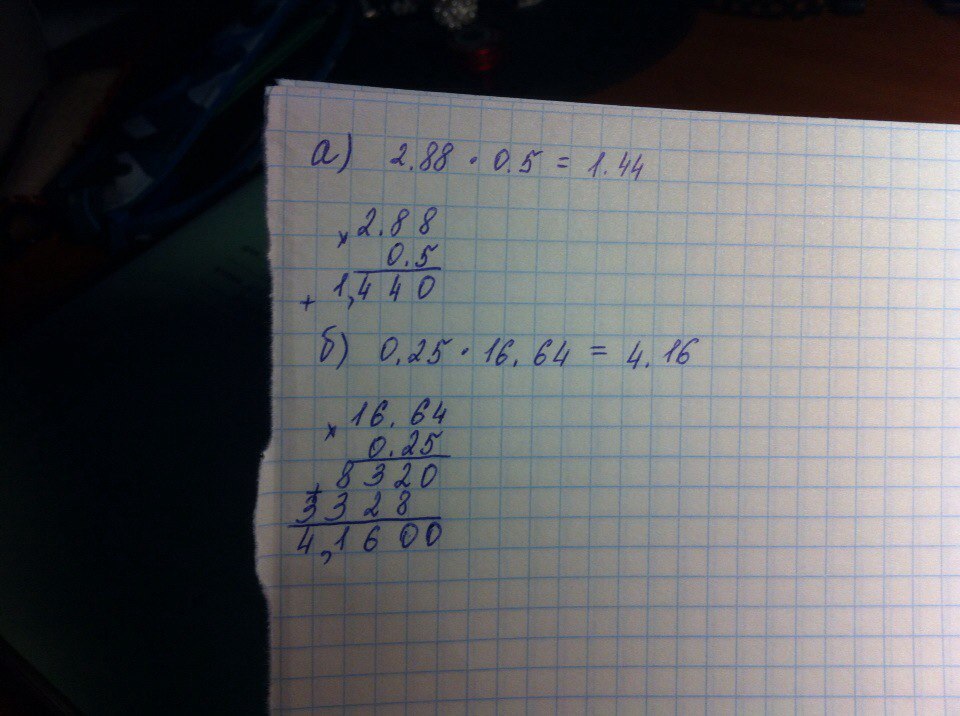 а) 2.88 · 0.5 = 1.44
× 2.88
0.5
+ 1,440
б) 0.25 · 16.64 = 4.16
× 16.64
0.25
8320
+ 3328
4,1600